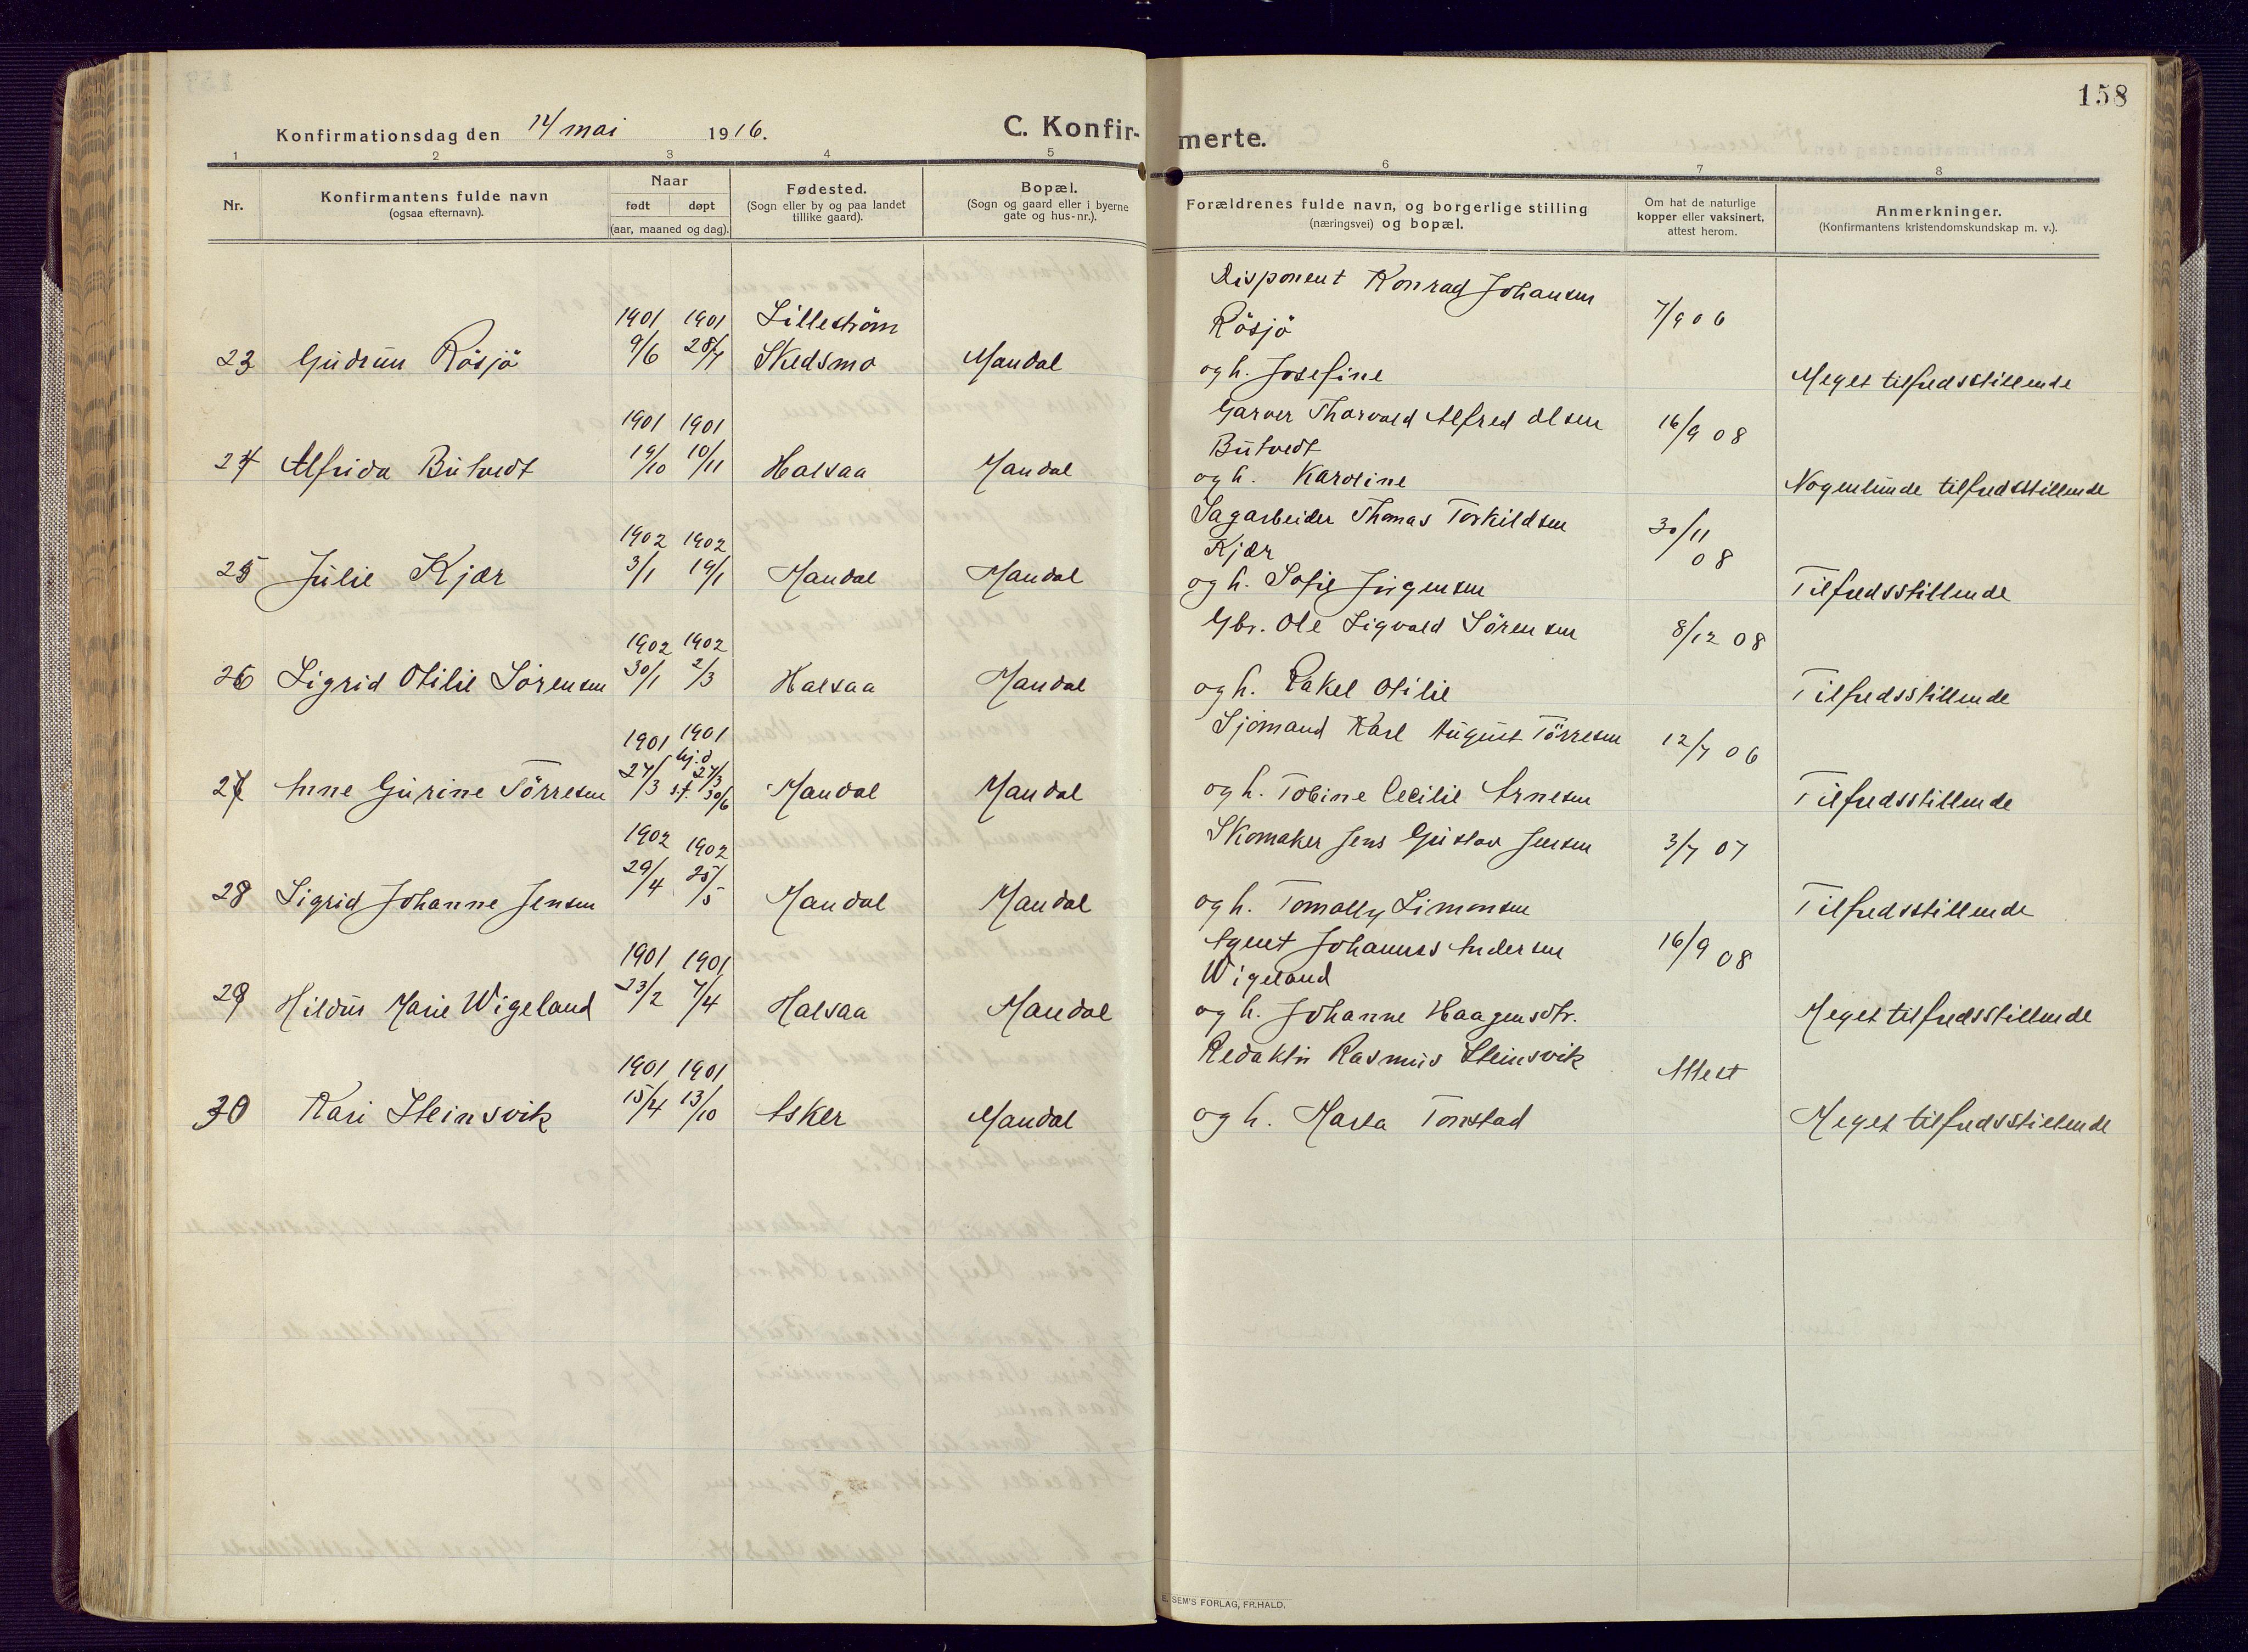 158
Konfirmationsdag den 14/ mai 1916.
C. Konfir-
merte.
1 2 3 4 5 6 7 8
Nr.
Konfirmantens fulde navn
(ogsaa efternavn).
Naar
født døpt
(aar, maaned og dag).
Fødested.
(Sogn eller by og paa landet
tillike gaard).
Bopæl.
(Sogn og gaard eller i byerne
gate og hus-nr.).
Forældrenes fulde navn, og borgerlige stilling
(næringsvei) og bopæl.
Om hat de naturlige
kopper eller vaksinert,
attest herom.
Anmerkninger.
(Konfirmantens kristendomskundskap m. v.).
Disponent Konrad Johansen
1901 1901 Lilleström Rösjö 7/9 06
23 Gudrun Rösjö 9/6 28/7 Skedsmo Mandal og h. Josefine Meget tilfredsstillende
1901 1901 Garver Thorvald Alfred Olsen 16/9 08
Butvedt
24 Alfrida Butvedt 19/10 10/11 Halsaa Mandal og h. Karoline Nogenlunde tilfredsstillende
1902 1902 Sagarbeider Thomas Torkildsen 30/11
Kjær 08
25 Julie Kjær 3/1 19/1 Mandal Mandal og h. Sofie Jörgensen Tilfredsstillende
1902 1902 Gbr. Ole Sigvald Sörensen 8/12 08
26 Sigrid Otilie Sörensen 30/1 2/3 Halsaa Mandal og h. Rakel Otilie Tilfredsstillende
1901 1901 Sjömand Karl August Törresen 12/7 06
hj. d.
27 Anne Gurine Törresen 27/3 27/3 Mandal Mandal og h. Tobine Cecilie Arnesen Tilfredsstillende
s.f. 30/6
1902 1902 Skomaker Jens Gustav Jensen 3/7 07
28 Sigrid Johanne Jensen 29/4 25/5 Mandal Mandal og h. Tomally Simonsen Tilfredsstillende
1901 1901 Agent Johannes Andersen 16/9 08
Wigeland
29 Hildur Marie Wigeland 23/2 7/4 Halsaa Mandal og h. Johanne Haagensdtr. Meget tilfredsstillende
1901 1901 Redaktör Rasmus Steinsvik Attest
30 Kari Steinsvik 15/4 13/10 Asker Mandal og h. Marta Tonstad Meget tilfredsstillende
E. SEM'S FORLAG, FR.HALD.